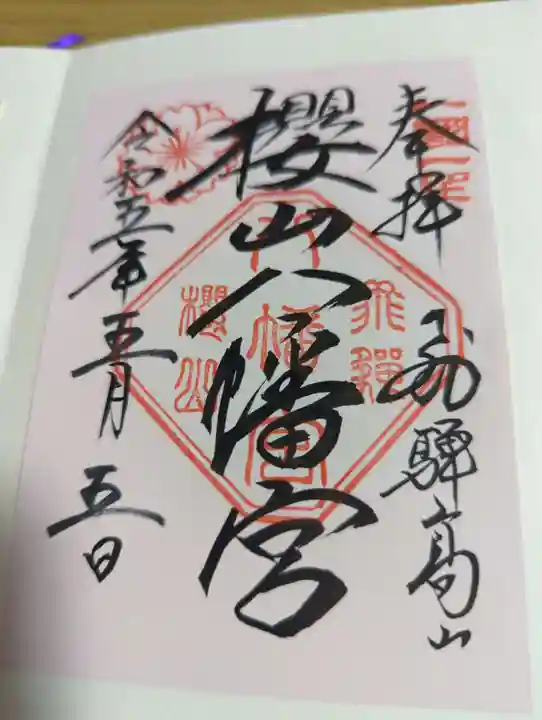 奉拝
飛騨高山
櫻山八幡宮
令和五年五月五日
飛騨
八幡宮
櫻山